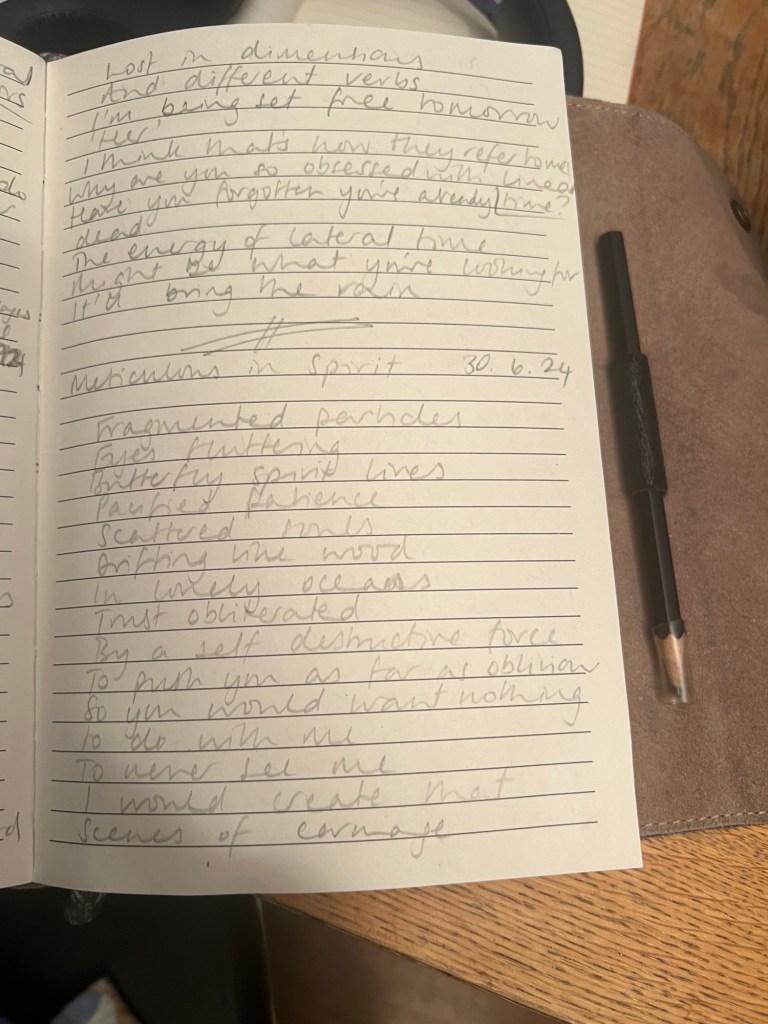 Lost in dimentions
And different verbs
I'm being set free tomorrow
'Her'
I think that's how they refer to me
Why are you so obsessed with linear
time?
Have you forgotten you're already
dead
The energy of lateral time
Might be what you're looking for
It'd bring the rain
Meticulous in Spirit 30.6.24
Fragmented particles
Eyes fluttering
Butterfly spirit lives
Pacified patience
Scattered souls
Drifting like wood
In lovely oceans
Trust obliterated
By a self destructive force
To push you as far as oblivion
So you would want nothing
to do with me
To never see me
I would create that
Scenes of carnage